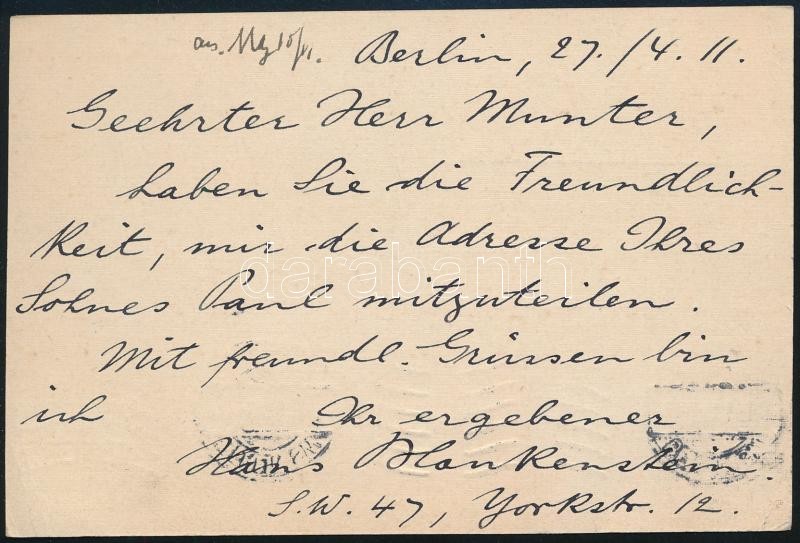 Berlin, 27./4. 11.
Geehrter Herr Munter,
haben Sie die Freundlich-
keit, mir die Adresse Ihres
Sohnes Paul mitzuteilen.
Mit freundl. Grüssen bin
ich Ihr ergebener
Hans Blankenstein.
S.W. 47, Yorkstr. 12.
darabanth